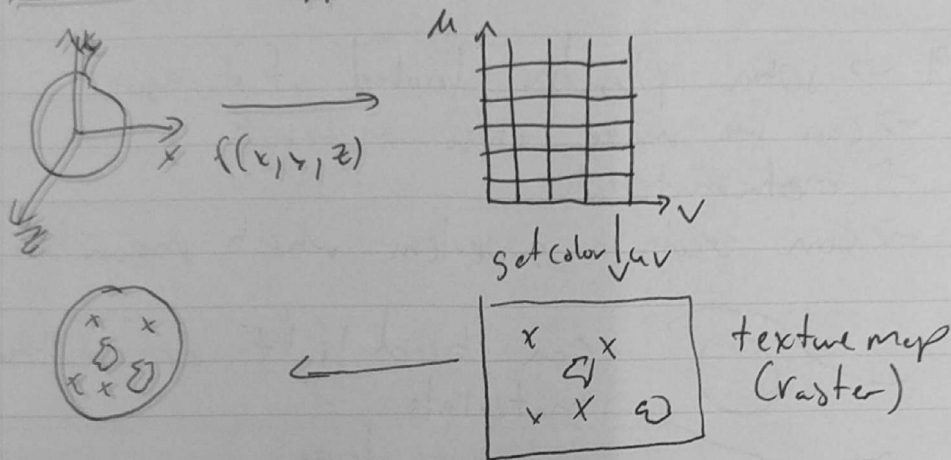 y
x
z
f(x, y, z)
u
v
get color uv
x x
x x
x x
x x
texture map
(raster)